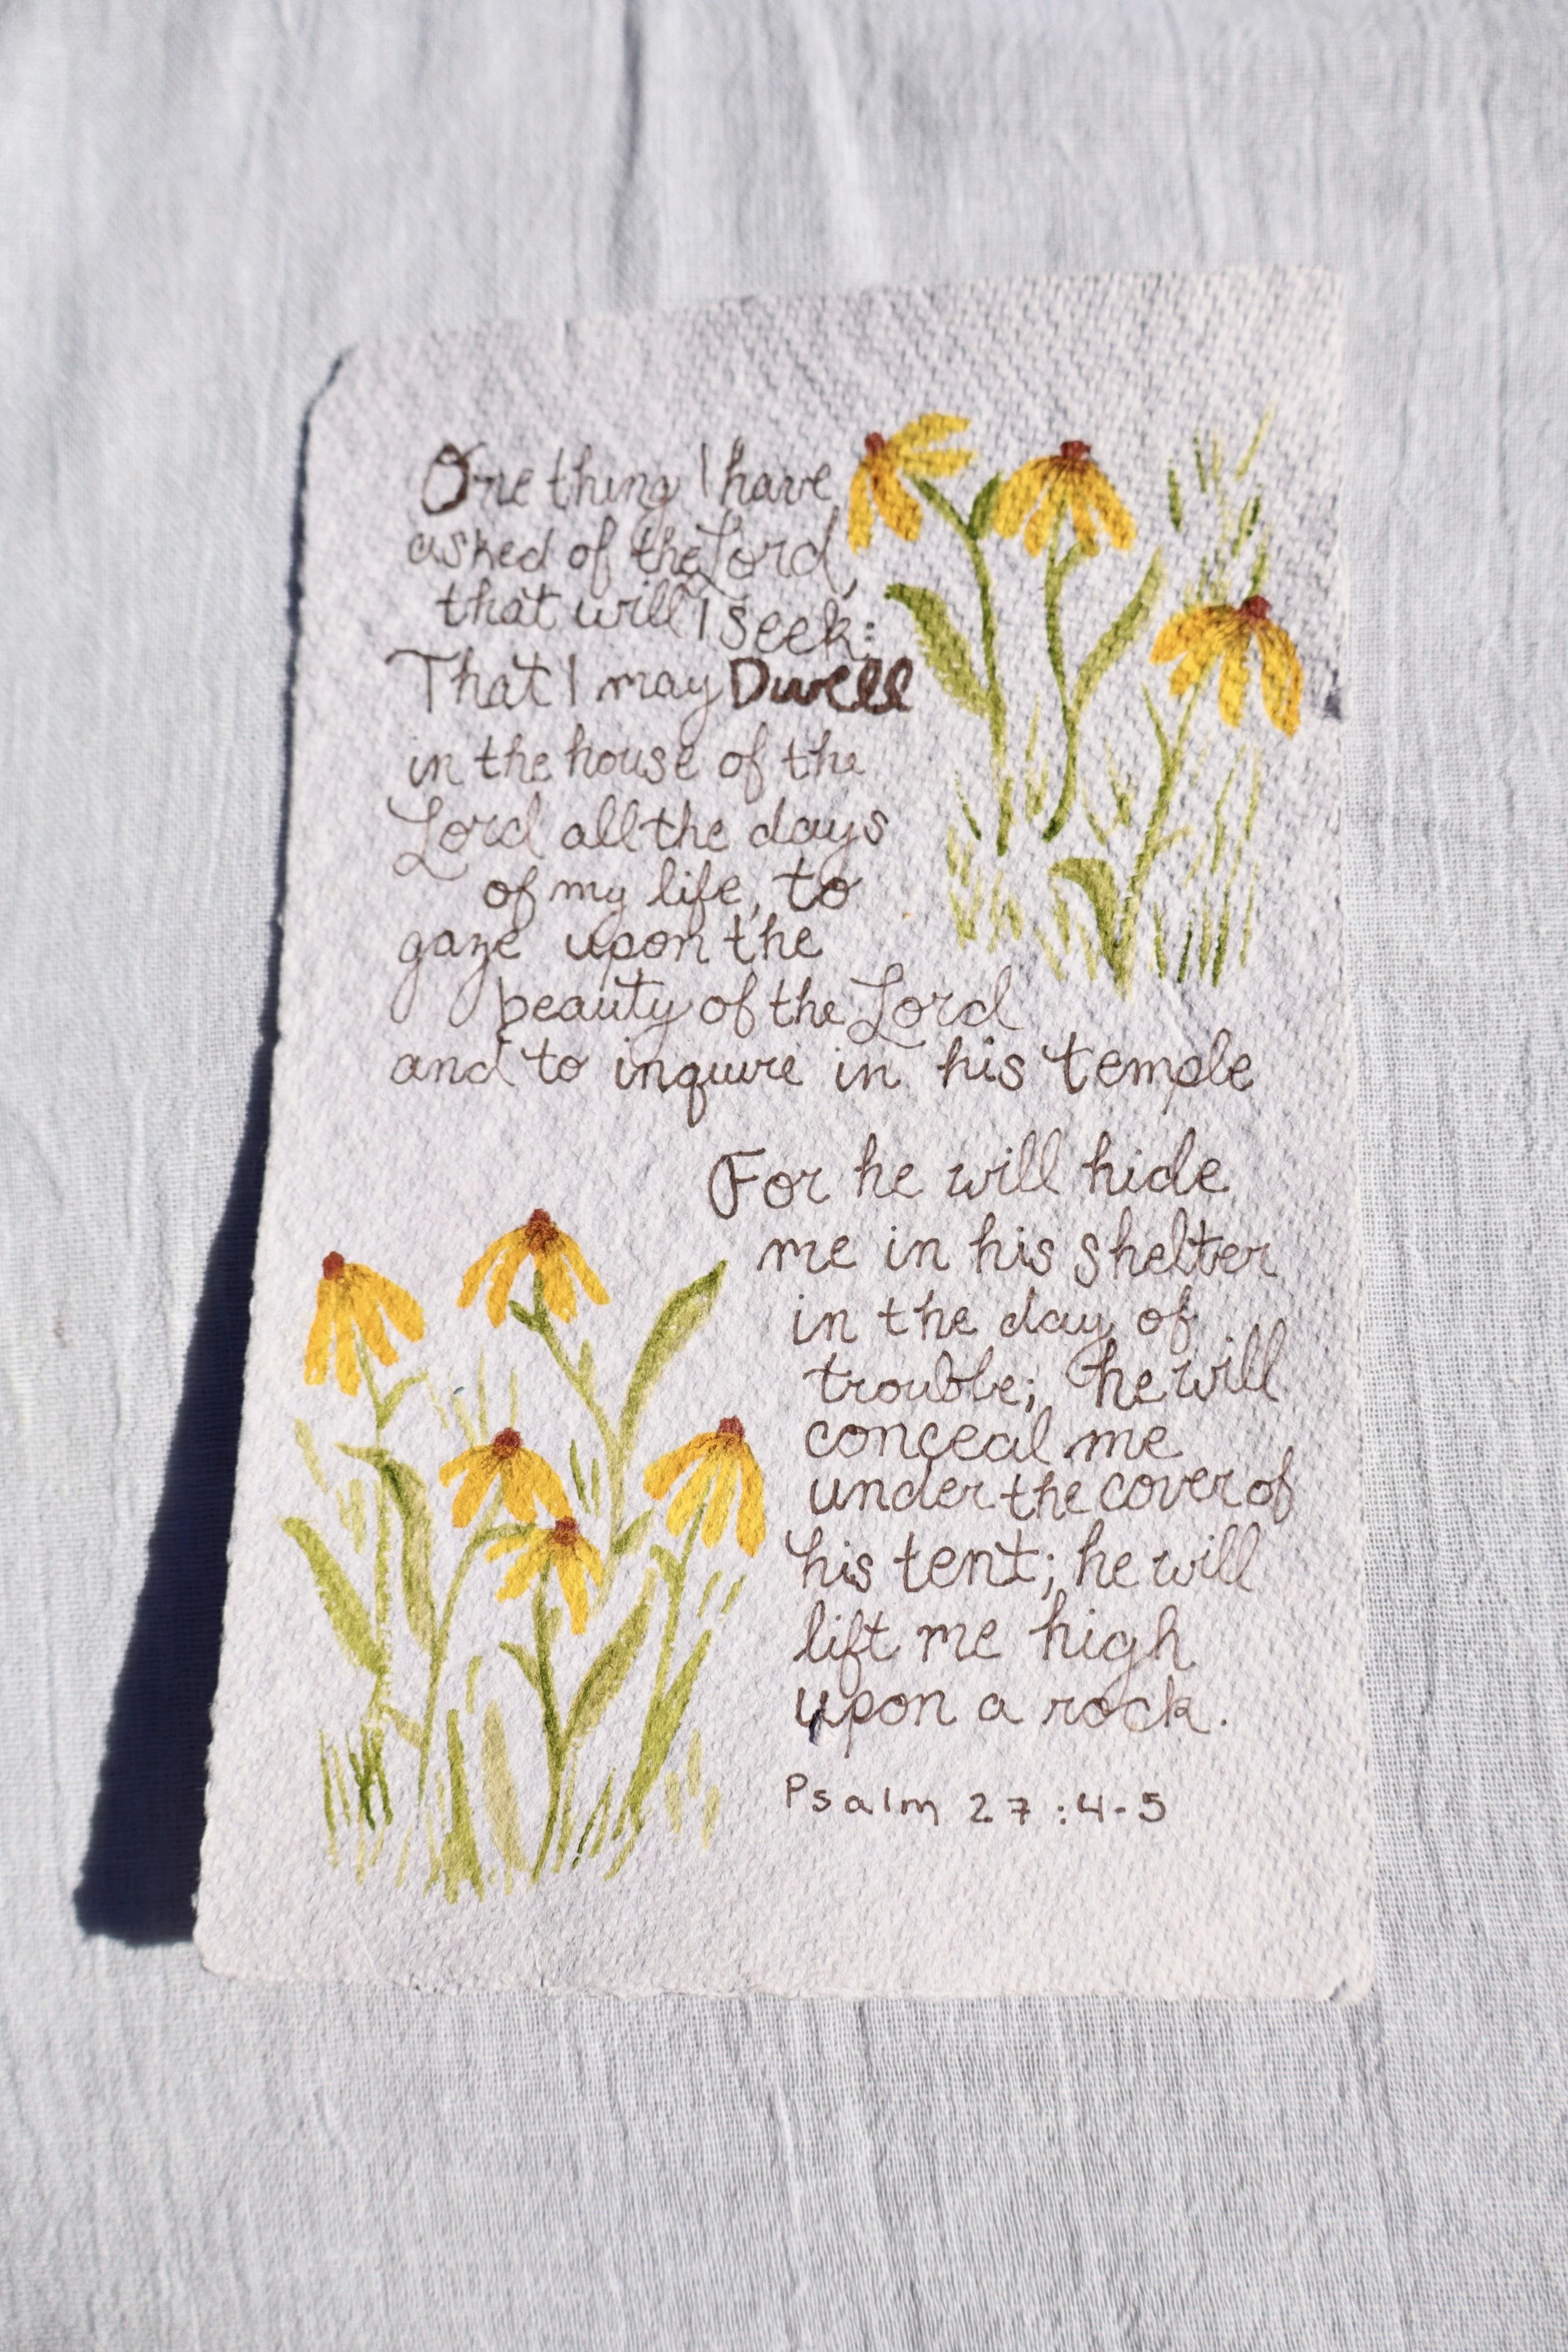 One thing I have
asked of the Lord,
that will I seek:
That I may Dwell
in the house of the
Lord all the days
of my life, to
gaze upon the
beauty of the Lord
and to inquire in his temple
For he will hide
me in his shelter
in the day of
trouble; he will
conceal me
under the cover of
his tent; he will
lift me high
upon a rock.
Psalm 27:4-5